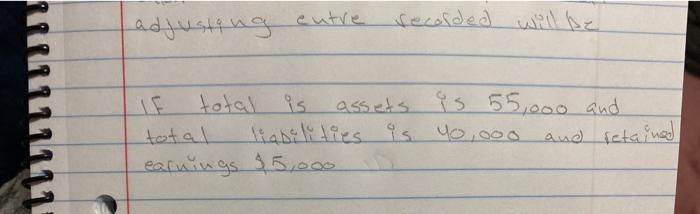 adjusting entre recorded will be
if total is assets is 55,000 and
total liabilities is 40,000 and retained
earnings $5,000